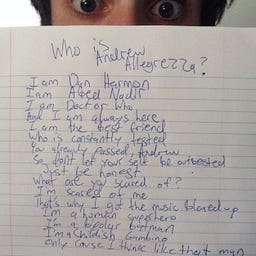 Who is
Andrew
Allegrezza?
I am Dan Harmon
I am Abed Nadir
I am Doctor Who
And I am always here
I am the best friend
Who is constantly tested
You already passed, Andrew
So don't let your self be outbested
Just be honest
What are you scared of?
I'm scared of me
That's why I got the music blared up
I'm a human superhero
I'm a bipolar batman
I'm a Childish Gambino
only cause I think like that man